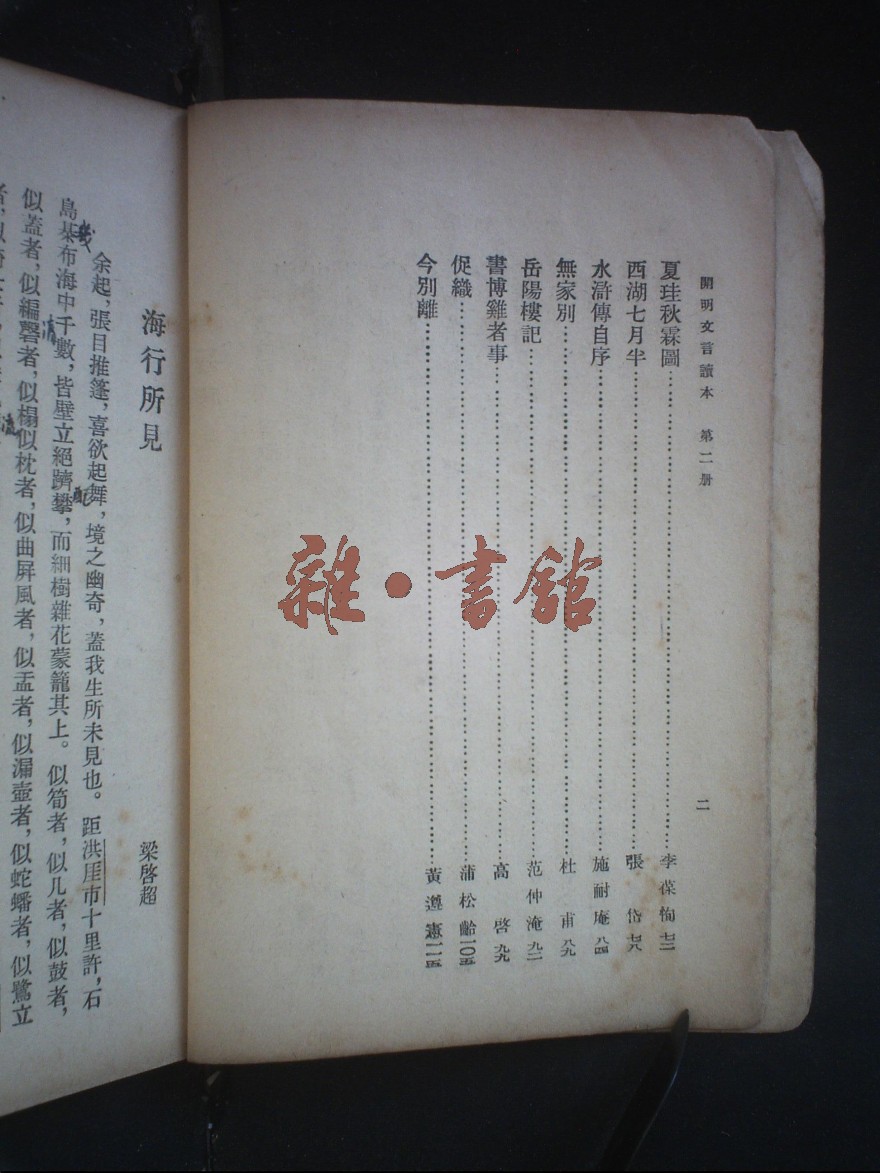 開明文言讀本 第二册
二
夏珪秋霖圖……李葆恂 七二
西湖七月半……張岱 七八
水滸傳自序……施耐庵 八四
無家別……杜甫 八九
岳陽樓記……范仲淹 九二
書博雞者事……高啓 九九
促織……蒲松齡 一〇五
今別離……黃遵憲 一一五
雜·書舘
海行所見
梁啓超
余起，張目推篷，喜欲起舞，境之幽奇，蓋我生所未見也。距洪厓市十里許，石
島棊布海中千數，皆壁立絕躋攀，而細樹雜花蒙籠其上。似筍者，似几者，似鼓者，
似蓋者，似編磬者，似榻似枕者，似曲屏風者，似盂者，似漏壺者，似蛇蟠者，似鷺立